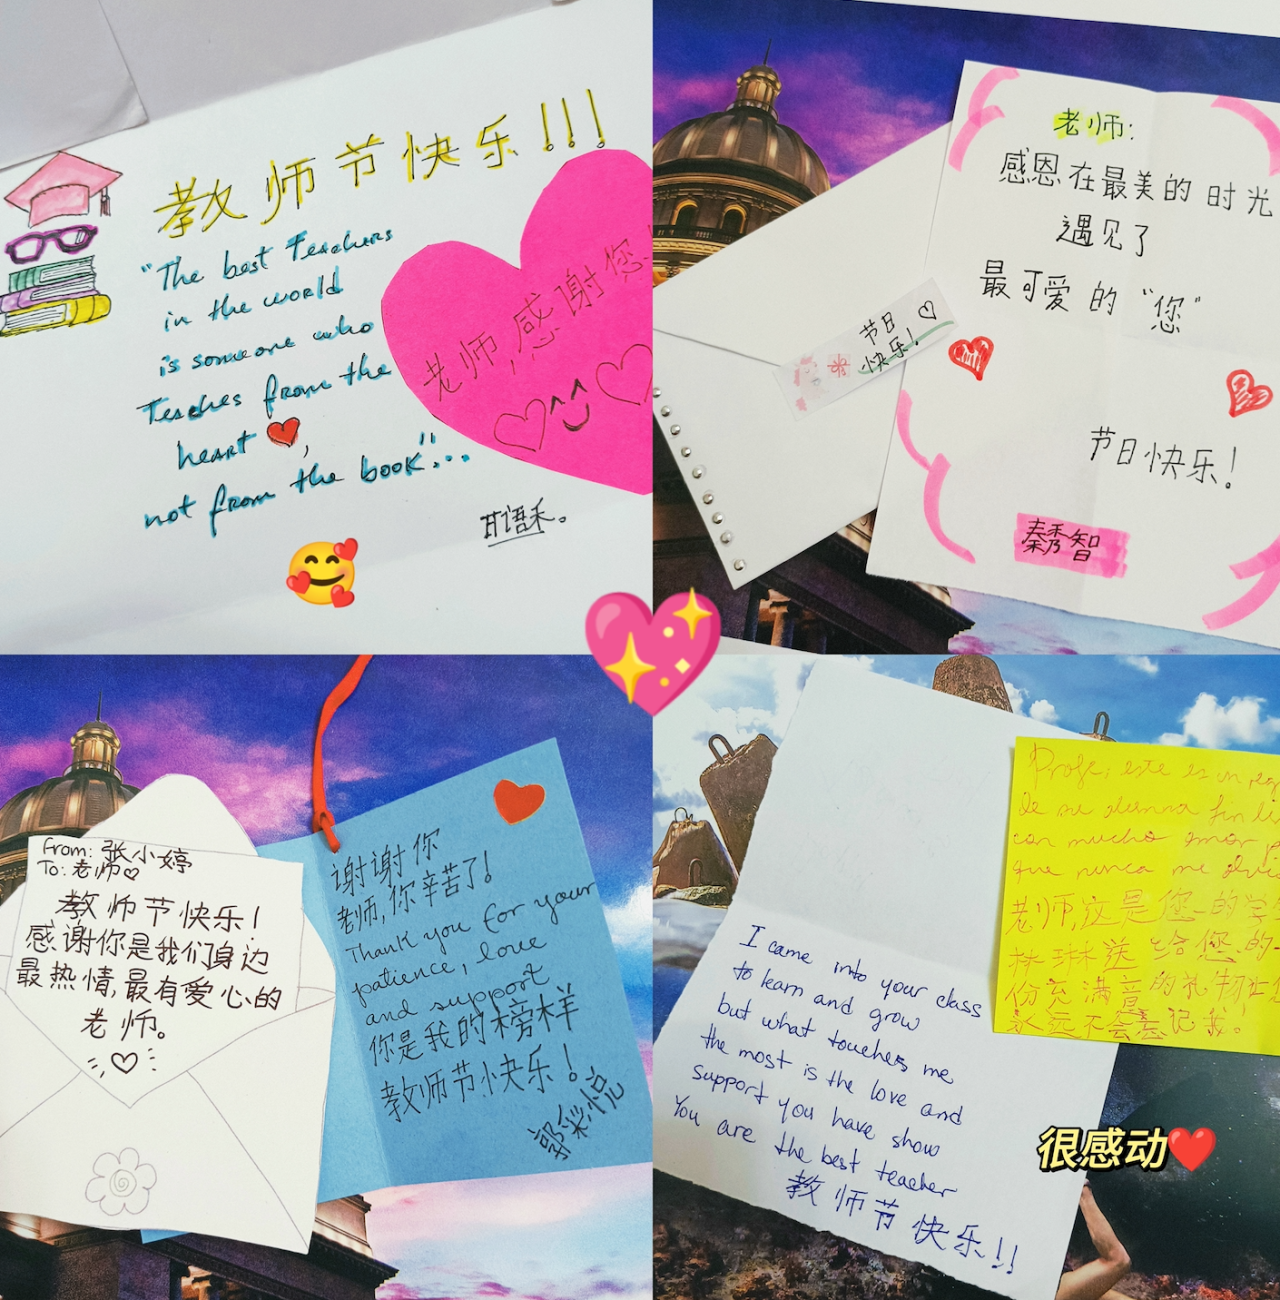 教师节快乐!!!
"The best Teachers
in the world
is someone who
Teaches from the
heart ,
not from the book"...
甘语禾。
老师,感谢您!
老师:
感恩在最美的时光
遇见了
最可爱的"您"
节日快乐!
秦秀智
节日
快乐!
From: 张小婷
To: 老师
教师节快乐!
感谢你是我们身边
最热情,最有爱心的
老师。
谢谢你
老师,你辛苦了!
Thank you for your
patience, love
and support
你是我的榜样
教师节快乐!
郭彩悦
I came into your class
to learn and grow
but what touches me
the most is the love and
support you have show
You are the best teacher
教师节快乐!!
Profe, este es un
de su alumna
con mucho amor
que nunca me
老师,这是您的学
林琳送给您的一
份充满意的礼物
永远不会忘记我!
很感动